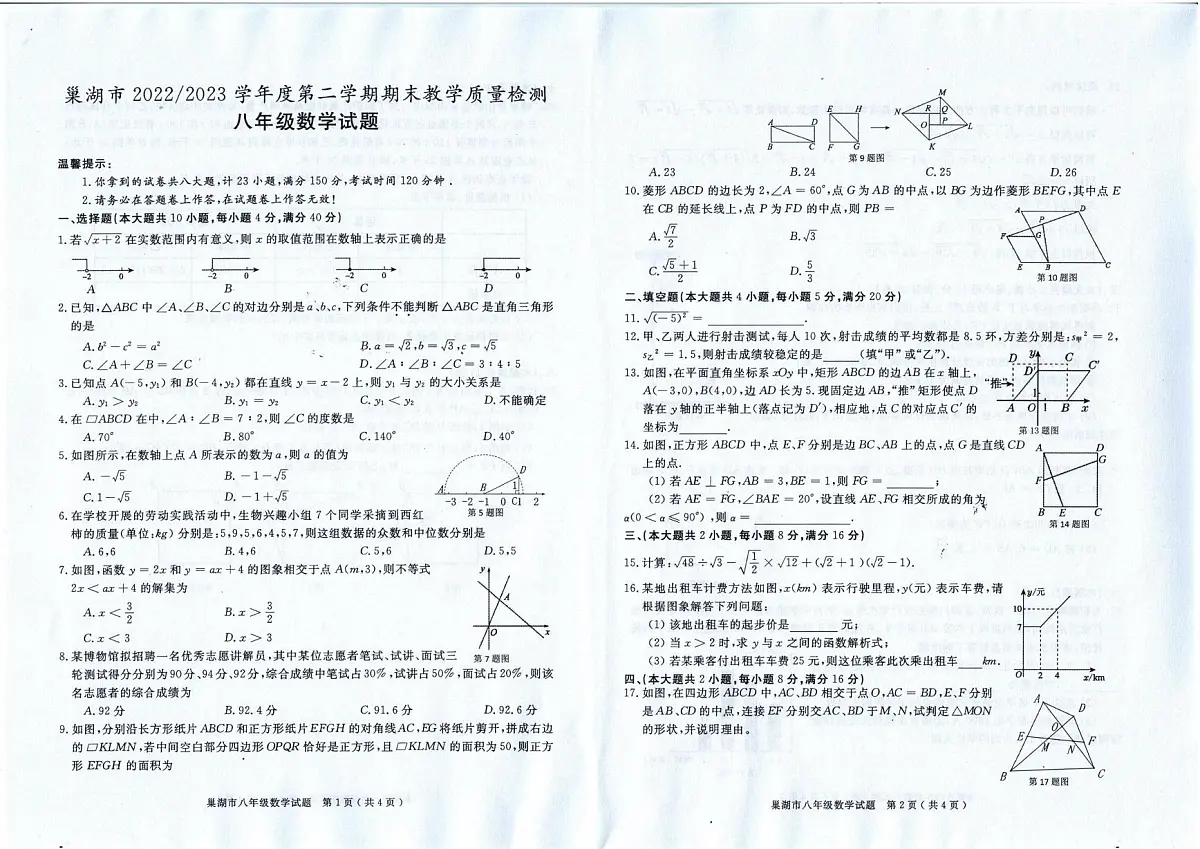 巢湖市 2022/2023 学年度第二学期期末教学质量检测
八年级数学试题
温馨提示:
1.你拿到的试卷共八大题,计 23 小题,满分 150 分,考试时间 120 分钟.
2.请务必在答题卷上作答,在试题卷上作答无效!
一、选择题(本大题共 10 小题,每小题 4 分,满分 40 分)
1.若 √(x+2) 在实数范围内有意义,则 x 的取值范围在数轴上表示正确的是
-2 0 -2 0 -2 0 -2 0
A B C D
2.已知,△ABC 中 ∠A、∠B、∠C 的对边分别是 a、b、c,下列条件不能判断 △ABC 是直角三角形
的是
A.b²-c²=a² B.a=√2,b=√3,c=√5
C.∠A+∠B=∠C D.∠A∶∠B∶∠C=3∶4∶5
3.已知点 A(-5,y₁) 和 B(-4,y₂) 都在直线 y=x-2 上,则 y₁ 与 y₂ 的大小关系是
A.y₁>y₂ B.y₁=y₂ C.y₁<y₂ D.不能确定
4.在 □ABCD 在中,∠A∶∠B=7∶2,则 ∠C 的度数是
A.70° B.80° C.140° D.40°
5.如图所示,在数轴上点 A 所表示的数为 a,则 a 的值为
A.-√5 B.-1-√5
C.1-√5 D.-1+√5
A B D 1 C
-3 -2 -1 0 1 2
第 5 题图
6.在学校开展的劳动实践活动中,生物兴趣小组 7 个同学采摘到西红
柿的质量(单位:kg)分别是:5,9,5,6,4,5,7,则这组数据的众数和中位数分别是
A.6,6 B.4,6 C.5,6 D.5,5
7.如图,函数 y=2x 和 y=ax+4 的图象相交于点 A(m,3),则不等式
2x<ax+4 的解集为
A.x<3/2 B.x>3/2
C.x<3 D.x>3
y A O x
第 7 题图
8.某博物馆拟招聘一名优秀志愿讲解员,其中某位志愿者笔试、试讲、面试三
轮测试得分分别为 90分、94分、92分,综合成绩中笔试占30%,试讲占50%,面试占20%,则该
名志愿者的综合成绩为
A.92 分 B.92.4 分 C.91.6 分 D.92.6 分
9.如图,分别沿长方形纸片 ABCD 和正方形纸片 EFGH 的对角线 AC,EG 将纸片剪开,拼成右边
的 □KLMN,若中间空白部分四边形 OPQR 恰好是正方形,且 □KLMN 的面积为 50,则正方
形 EFGH 的面积为
巢湖市八年级数学试题 第 1 页(共 4 页)
A D B C E H F G M N R Q O P L K
第 9 题图
A.23 B.24 C.25 D.26
10.菱形 ABCD 的边长为 2,∠A=60°,点 G 为 AB 的中点,以 BG 为边作菱形 BEFG,其中点 E
在 CB 的延长线上,点 P 为 FD 的中点,则 PB=
A.√7/2 B.√3
C.(√5+1)/2 D.5/3
A D P F G E B C
第 10 题图
二、填空题(本大题共 4 小题,每小题 5 分,满分 20 分)
11.√(-5)²=________.
12.甲、乙两人进行射击测试,每人 10 次,射击成绩的平均数都是 8.5 环,方差分别是:s甲²=2,
s乙²=1.5,则射击成绩较稳定的是____(填“甲”或“乙”).
13.如图,在平面直角坐标系 xOy 中,矩形 ABCD 的边 AB 在 x 轴上,
A(-3,0),B(4,0),边 AD 长为 5.现固定边 AB,“推”矩形使点 D
落在 y 轴的正半轴上(落点记为 D′),相应地,点 C 的对应点 C′ 的
坐标为______.
D y C “推” D′ C′ 1 A O 1 B x
第 13 题图
14.如图,正方形 ABCD 中,点 E、F 分别是边 BC、AB 上的点,点 G 是直线 CD
上的点.
(1)若 AE ⊥ FG,AB=3,BE=1,则 FG=______;
(2)若 AE=FG,∠BAE=20°,设直线 AE、FG 相交所成的角为
α(0<α≤90°),则 α=________.
A D G F B E C
第 14 题图
三、(本大题共 2 小题,每小题 8 分,满分 16 分)
15.计算:√48÷√3-√(1/2)×√12+(√2+1)(√2-1).
16.某地出租车计费方法如图,x(km) 表示行驶里程,y(元) 表示车费,请
根据图象解答下列问题:
(1)该地出租车的起步价是______元;
(2)当 x>2 时,求 y 与 x 之间的函数解析式;
(3)若某乘客付出租车车费 25 元,则这位乘客此次乘出租车___km.
y/元 10 7 O 2 4 x/km
四、(本大题共 2 小题,每小题 8 分,满分 16 分)
17.如图,在四边形 ABCD 中,AC、BD 相交于点 O,AC=BD,E、F 分别
是 AB、CD 的中点,连接 EF 分别交 AC、BD 于 M、N,试判定 △MON
的形状,并说明理由。
A D O E M N F B C
第 17 题图
巢湖市八年级数学试题 第 2 页(共 4 页)